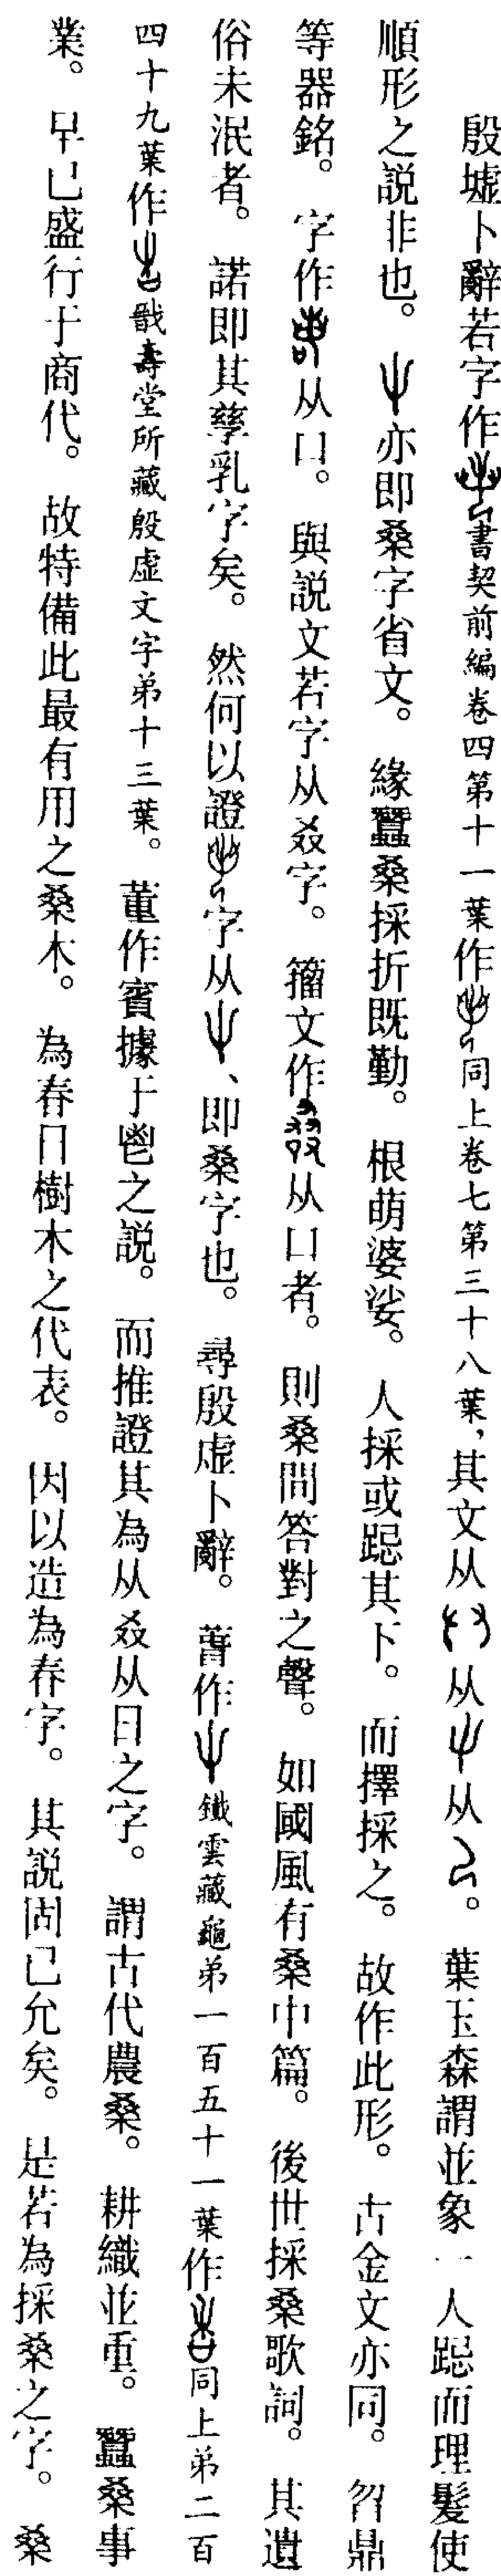 殷墟卜辭若字作書契前編卷四第十一葉作同上卷七第三十八葉，其文从从从。葉玉森謂並象一人跽而理髮使
順形之説非也。亦即桑字省文。緣蠶桑採折既勤。根萌婆娑。人採或跽其下。而擇採之。故作此形。古金文亦同。曶鼎
等器銘。字作从口。與説文若字从叒字。籀文作从口者。則桑問答對之聲。如國風有桑中篇。後世採桑歌詞。其遺
俗未泯者。諾即其孳乳字矣。然何以證字从、即桑字也。尋殷虛卜辭。萅作鐵雲藏龜弟一百五十一葉作同上弟二百
四十九葉作戩壽堂所藏殷虛文字弟十三葉。董作賓據于鬯之説。而推證其為从叒从日之字。謂古代農桑。耕織並重。蠶桑事
業。早已盛行于商代。故特備此最有用之桑木。為春日樹木之代表。因以造為春字。其説固已允矣。是若為採桑之字。桑